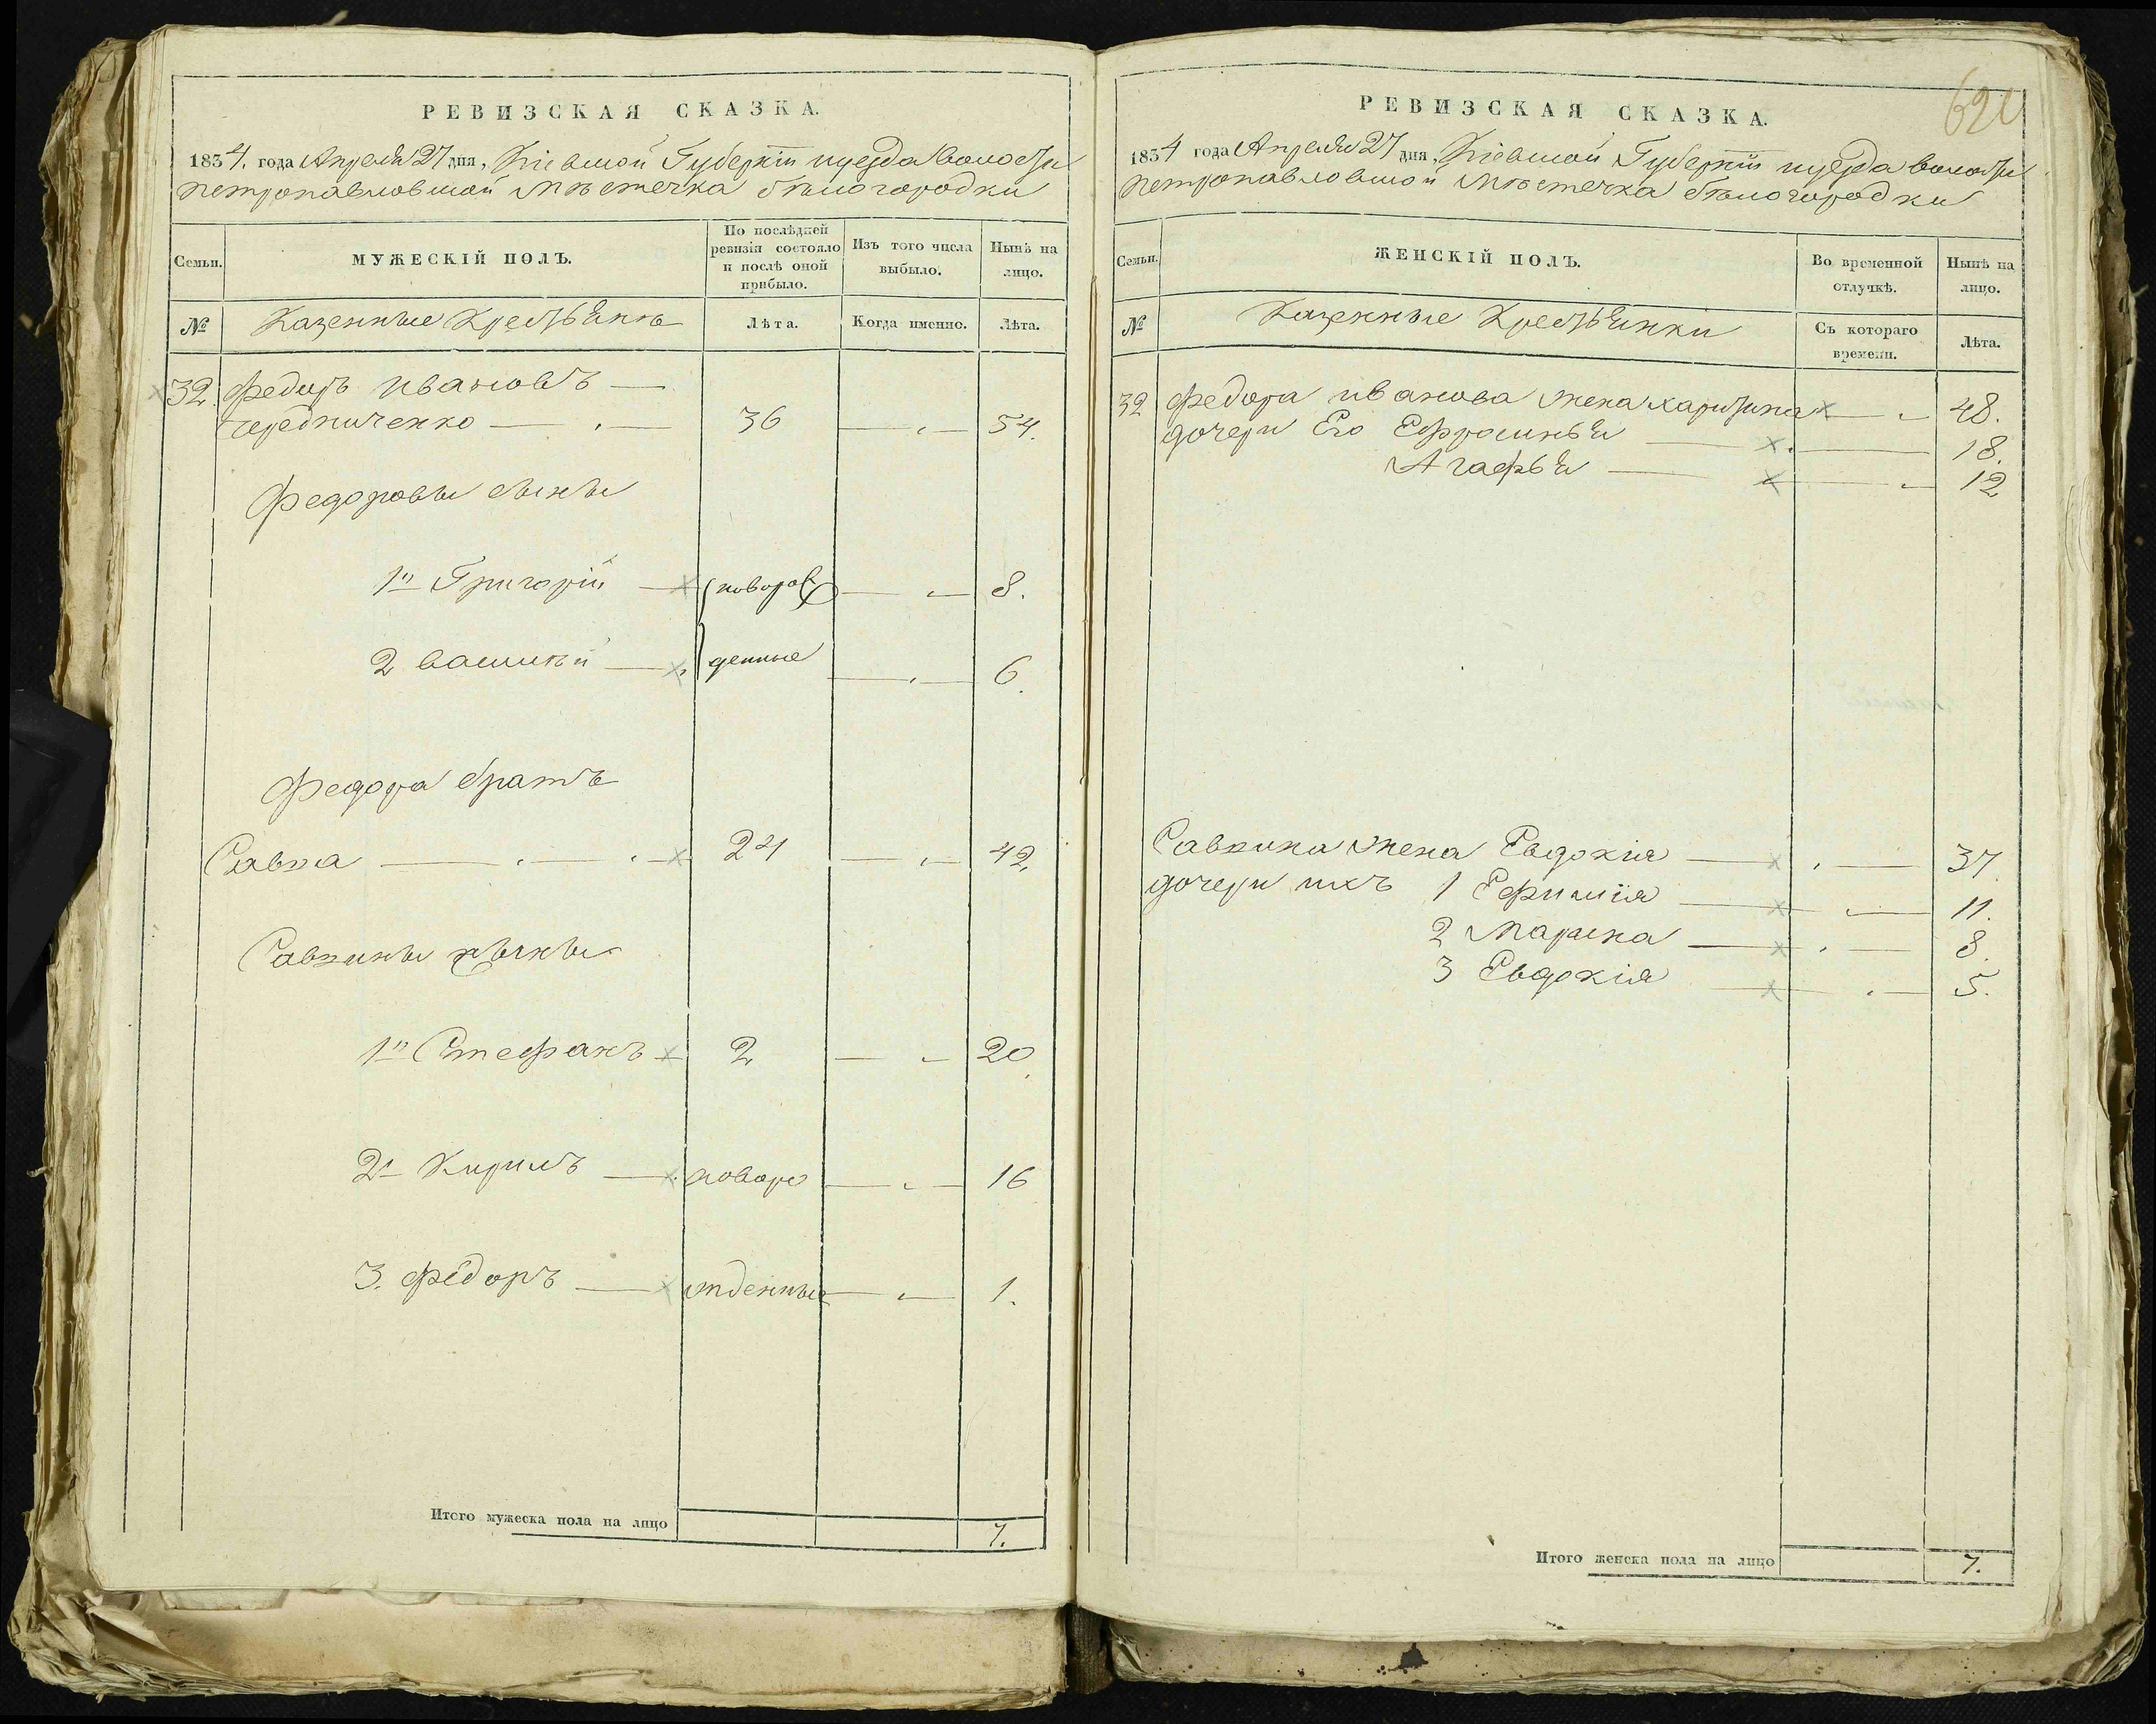 РЕВИЗСКАЯ СКАЗКА.
1834. года Апреля 27 дня, Кіевской Губерніи и уезда волости
петропавловской Мѣстечка бѣлогородки
Семьи.
МУЖЕСКІЙ ПОЛЪ.
По послѣдней ревизіи состояло и послѣ оной прибыло.
Изъ того числа выбыло.
Нынѣ на лицо.
№
Казенные Крестьяне
Лѣта.
Когда именно.
Лѣта.
32. Федоръ ивановъ —
чередниченко — 36 — 54.
Федоровы сыны
1й Григорій — новорож — 8.
2 василій — денные — 6.
Федора братъ
Савка — 24 — 42.
Савкины сыны
1й Стефанъ — 2 — 20
2й Кирилъ — новоро — 16
3. Федоръ — жденные — 1.
Итого мужеска пола на лицо 7.
621
РЕВИЗСКАЯ СКАЗКА.
1834 года Апреля 27 дня, Кіевской Губерніи и уезда волости
петропавловской Мѣстечка бѣлогородки
Семьи.
ЖЕНСКІЙ ПОЛЪ.
Во временной отлучкѣ.
Нынѣ на лицо.
№
Казенные Крестьянки
Съ котораго времени.
Лѣта.
32 Федора иванова жена харитина — 48.
дочери Его Ефросинья — 18.
Агафья — 12
Савкина жена Евдокія — 37.
дочери ихъ 1 Ефимія — 11.
2 Марина — 8.
3 Евдокія — 5.
Итого женска пола на лицо 7.